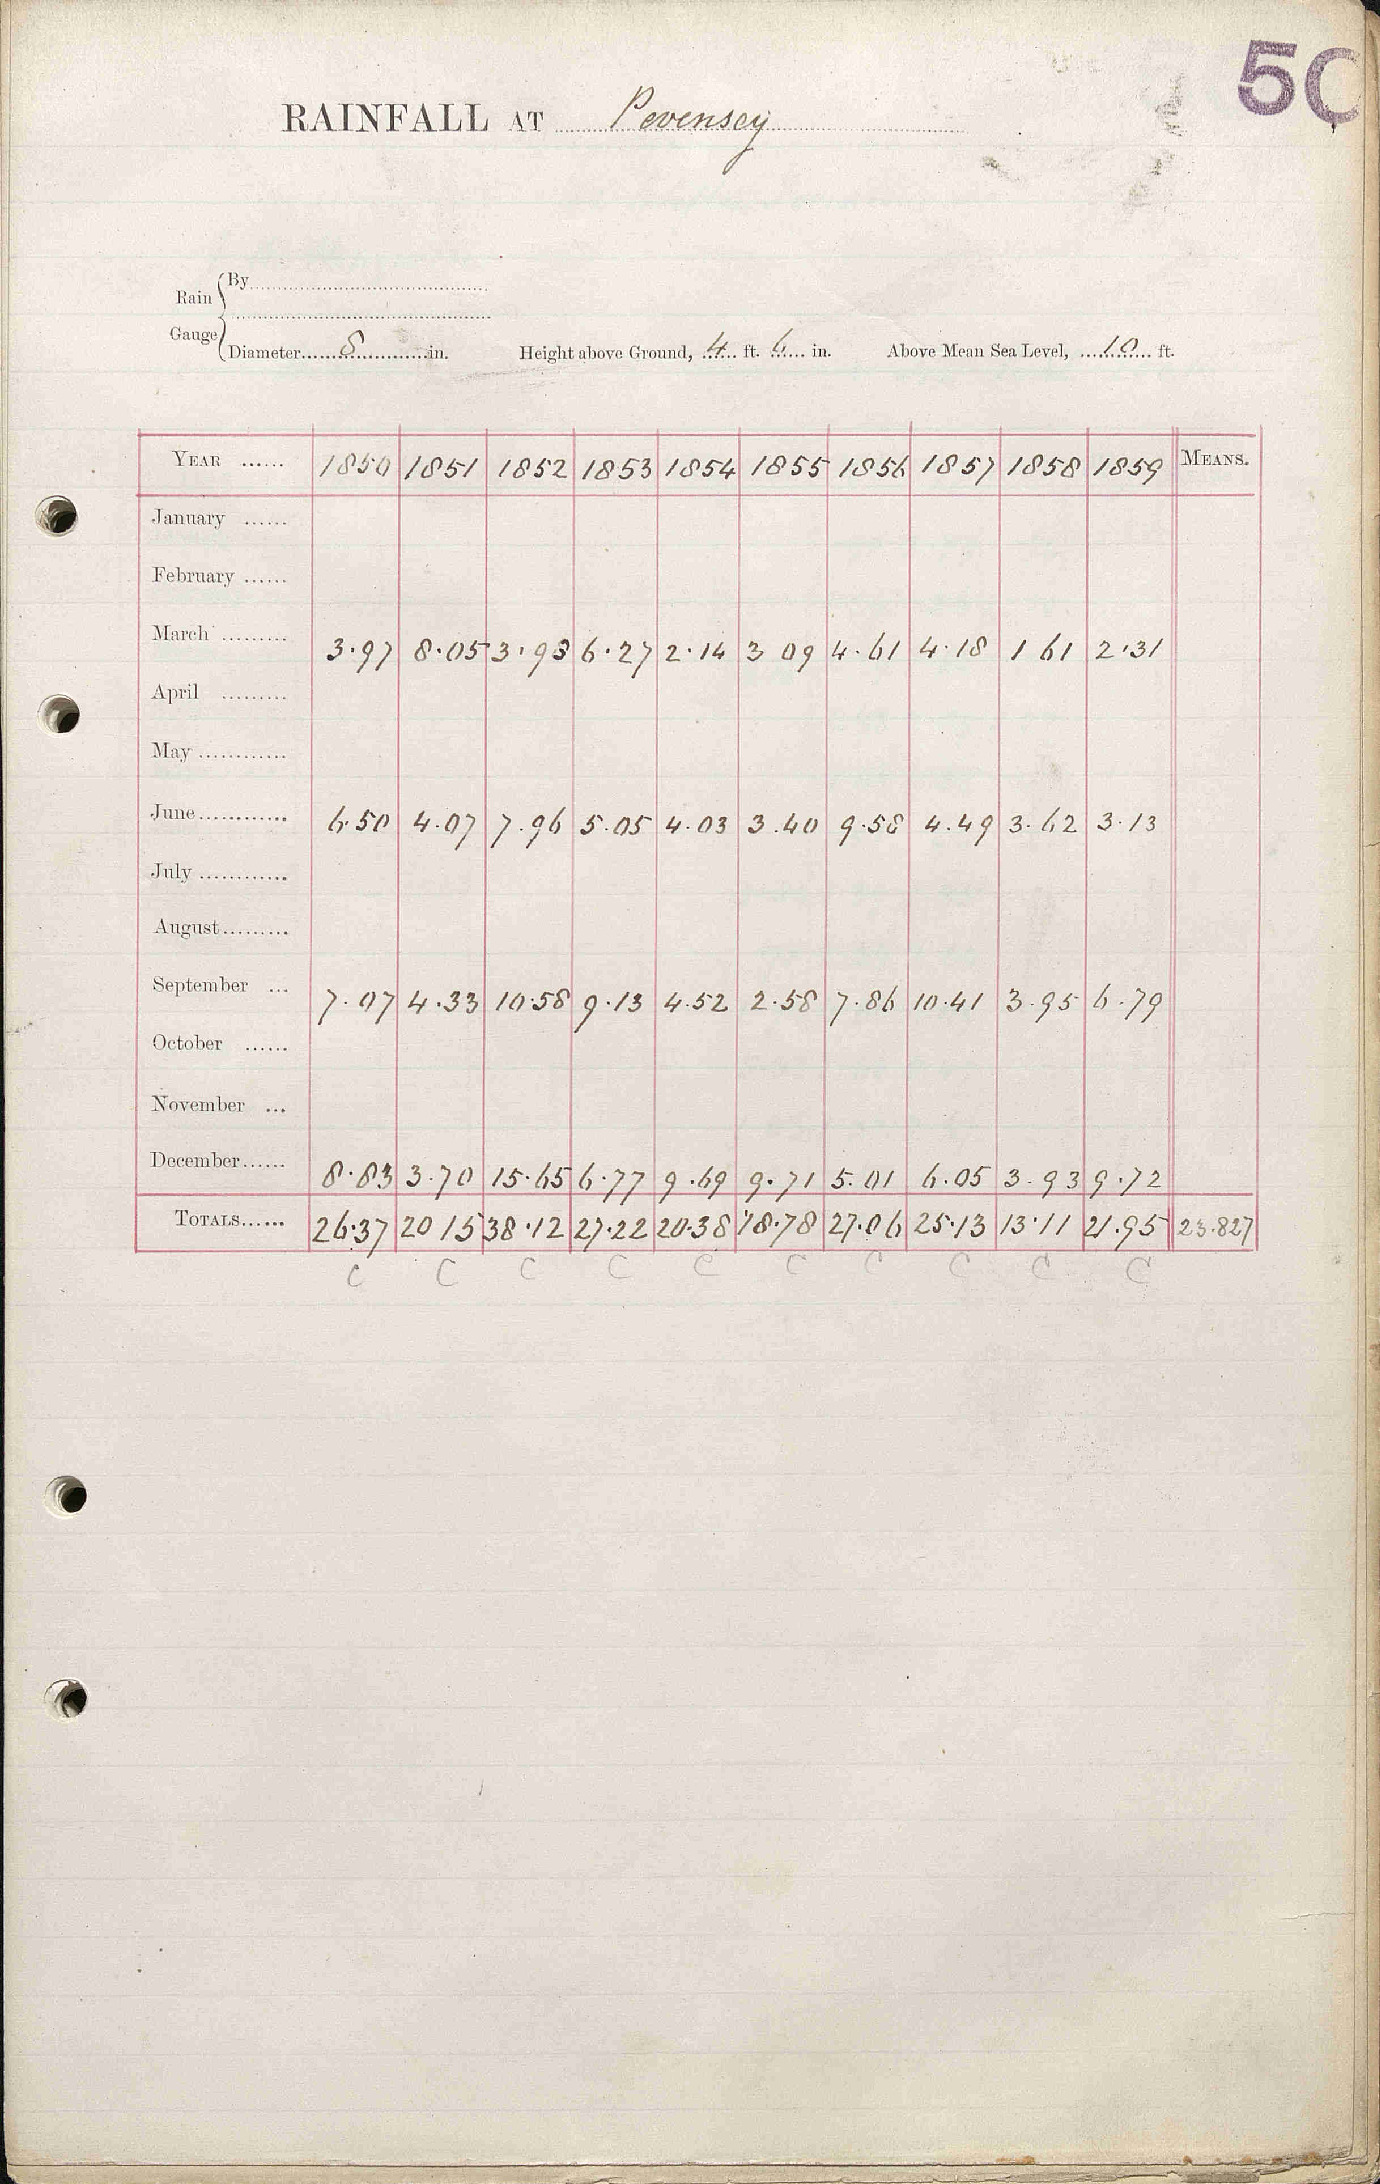 50
RAINFALL AT Pevensey
Rain Gauge
By
Diameter 8 in. Height above Ground, 4 ft. 6 in. Above Mean Sea Level, 10 ft.
YEAR ...... 1850 1851 1852 1853 1854 1855 1856 1857 1858 1859 MEANS.
January ......
February ......
March ......... 3.97 8.05 3.93 6.27 2.14 3 09 4.61 4.18 1 61 2.31
April .........
May ............
June ............ 6.50 4.07 7.96 5.05 4.03 3.40 9.58 4.49 3.62 3.13
July ............
August .........
September ... 7.07 4.33 10.58 9.13 4.52 2.58 7.86 10.41 3.95 6.79
October ......
November ...
December ...... 8.83 3.70 15.65 6.77 9.69 9.71 5.01 6.05 3.93 9.72
TOTALS ...... 26.37 20 15 38.12 27.22 20.38 18.78 27.06 25.13 13.11 21.95 23.827
C C C C C C C C C C